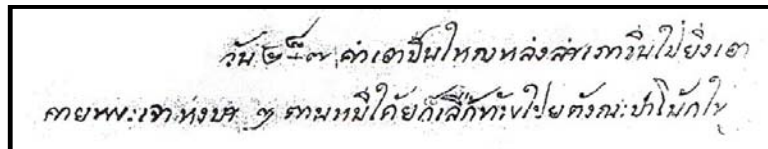 วัน ๗ ค่ำเอาปืนใหญหล่งสำเภาขึ้นไปยิงเอา
คายพระเจาหงษา ๆ ตานหมีได้ยก็เลีกทับไปยตังณะปาโมกให